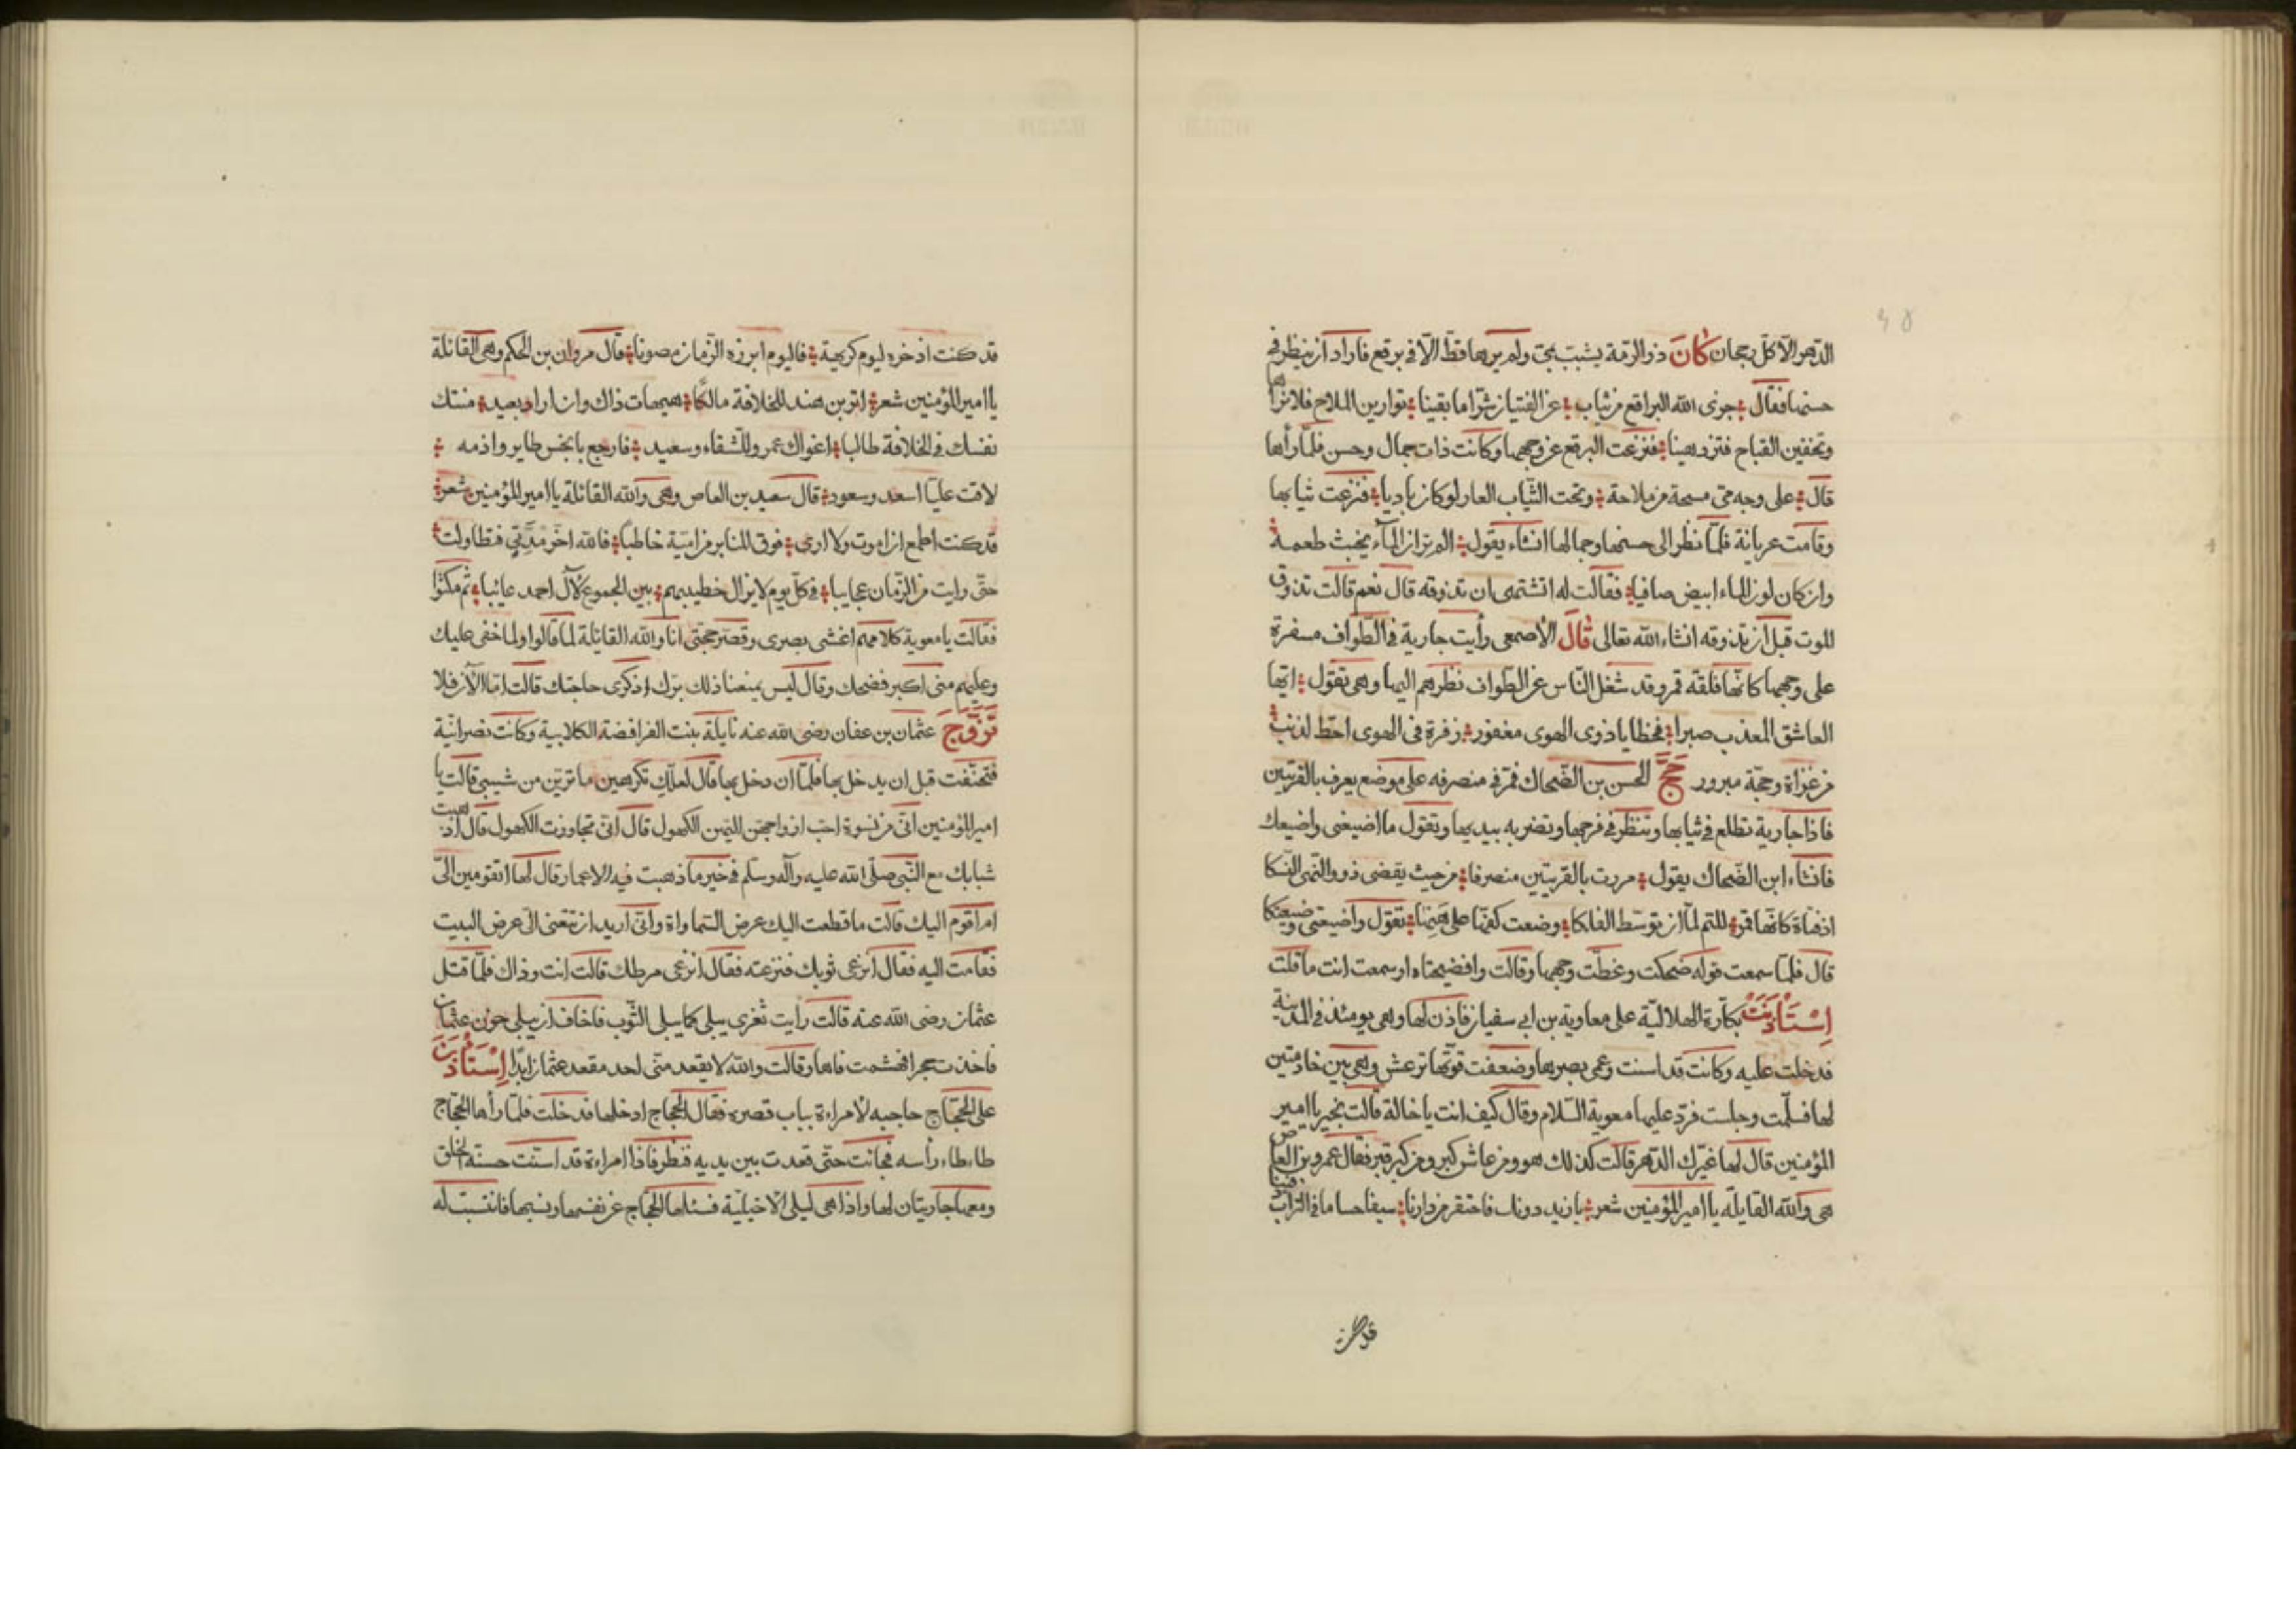 الدّهر الّا كلّ هجان كَانَ ذو الرّمة يشبّب بمىّ ولم يرها قطّ الّا فى برقع فاراد ان ينظر فى
حسنها فقال جزى الله البراقع من ثياب عن الفتيان شرّا ما بقينا توارين الملاح فلا نراها
وتخفين القباح فتزدهينا فنزعت البرقع عن وجهها وكانت ذات جمال وحسن فلمّا رأها
قال على وجه مىّ مسحة من ملاحة وتحت الثّياب العار لو كان باديا فنزعت ثيابها
وقامت عريانة فلمّا نظر الى حسنها وجمالها انشاء يقول الم تر ان المآء يخبث طعمه
وان كان لون الماء ابيض صافيا فقالت له اتشتهى ان تذوقه قال نعم قالت تذوق
الموت قبل ان تذوقه انشاء الله تعالى قَالَ الاصمعى رأيت جارية فى الطّواف مسفرة
على وجهها كانّها فلقة قمر وقد شغل النّاس عن الطّواف نظرهم اليها وهى تقول ايّها
العاشق المعذب صبرا فخطايا ذوى الهوى مغفور زفرة فى الهوى احطّ لذنب
من غزاة وحجّة مبرور حَجَّ الحسن بن الضّحاك فمرّ فى منصرفه على موضع يعرف بالقريتين
فاذا جارية تطلع فى ثيابها وتنظر فى فرجها وتضربه بيديها وتقول ما اضيعنى واضيعك
فانشاء ابن الضّحاك يقول مررت بالقريتين منصرفا من حيث يقضى ذوو النّهى النّسكا
اذ فتاة كانّها قمر للتم لمّا ان توسّط الفلكا وضعت كفّها على هنها تقول واضيعتى وضيعتكا
قال فلمّا سمعت قوله ضحكت وغطّت وجهها وقالت وافضيحتاه اوسمعت انت ما قلت
اِسْتَأْذَنَتْ بكّارة الهلاليّة على معاوية بن ابى سفيان فاذن لها وهى يومئذ فى المدينة
فدخلت عليه وكانت قد اسنت وعمى بصرها وضعفت قوّتها ترعش وهى بين خادمتين
لها فسلّمت وجلست فردّ عليها معوية السّلام وقال كيف انت يا خالة قالت بخير يا امير
المؤمنين قال لها غيّرك الدّهر قالت كذلك هو ومن عاش كبر ومن كبر قبر فقال عمرو بن العاص
هى والله القايلة يا امير المؤمنين شعر يا زيد دونك فاحتفر من دارنا سيفا حساما فى التّراب دفينا
قد كنت
قد كنت اذخره ليوم كريهة فاليوم ابرزه الزّمان مصونا قال مروان بن الحكم وهى القائلة
يا امير المؤمنين شعر اترى بن هند للخلافة مالكًا هيهات ذاك وان اراد بعيد منتك
نفسك فى الخلافة طالبا اغواك عمرو للشّقاء وسعيد فارجع بانحس طاير واذمه
لاقت عليّا اسعد وسعود قال سعيد بن العاص وهى والله القائلة يا امير المؤمنين شعر
قد كنت اطمع ان اموت ولا ارى فوق المنابر من اميّة خاطباً فالله اخّر مُدّتى فتطاولت
حتّى رايت من الزّمان عجايبا فى كلّ يوم لا يزال خطيبهم بين الجموع لآل احمد عائبا ثم سكتوا
فقالت يا معوية كلامهم اغشى بصرى وقصر حجّتى انا والله القائلة لما قالوا ولما خفى عليك
وعليهم منى اكبر فضحك وقال ليس يمنعنا ذلك برّك اذكرى حاجتك قالت امّا الآن فلا
تَزَوَّجَ عثمان بن عفان رضى الله عنه نايلة بنت الفرافضة الكلابية وكانت نصرانيّة
فتحنّفت قبل ان يدخل بها فلمّا ان دخل بها قال لعلّكِ تكرهين ما ترين من شيبى قالت يا
امير المؤمنين انّى من نسوة احبّ ازواجهن اليهن الكهول قال انّى تجاوزت الكهول قال اذهبت
شبابك مع النّبى صلّى الله عليه وآله وسلّم فى خير ما ذهبت فيه الاعمار قال لها اتقومين الىّ
ام اقوم اليك قالت ما قطعت اليك عرض السّماواة وانّى اريد ان تعنى الى عرض البيت
فقامت اليه فقال انزعى ثوبك فنزعته فقال انزعى مرطك قالت انت وذاك فلمّا قتل
عثمان رضى الله عنه قالت رأيت ثغرى يبلى كما يبلى الثّوب فاخاف ان يبلى حزن عثمان
فاخذت حجرا فهشمت فاها وقالت والله لا يقعد منّى احد مقعد عثمان ابدًا اِسْتَأْذَنَ
على الحجّاج حاجبه لامراءة بباب قصره فقال الحجاج ادخلها فدخلت فلمّا رأها الحجّاج
طاءطاء رأسه فجائت حتّى قعدت بين يديه فنظر فاذا امراءة قد اسنّت حسنة الخلق
ومعها جاريتان لها واذا هى ليلى الاخيليّة فسئلها الحجّاج عن نفسها ونسبها فانتسبت له